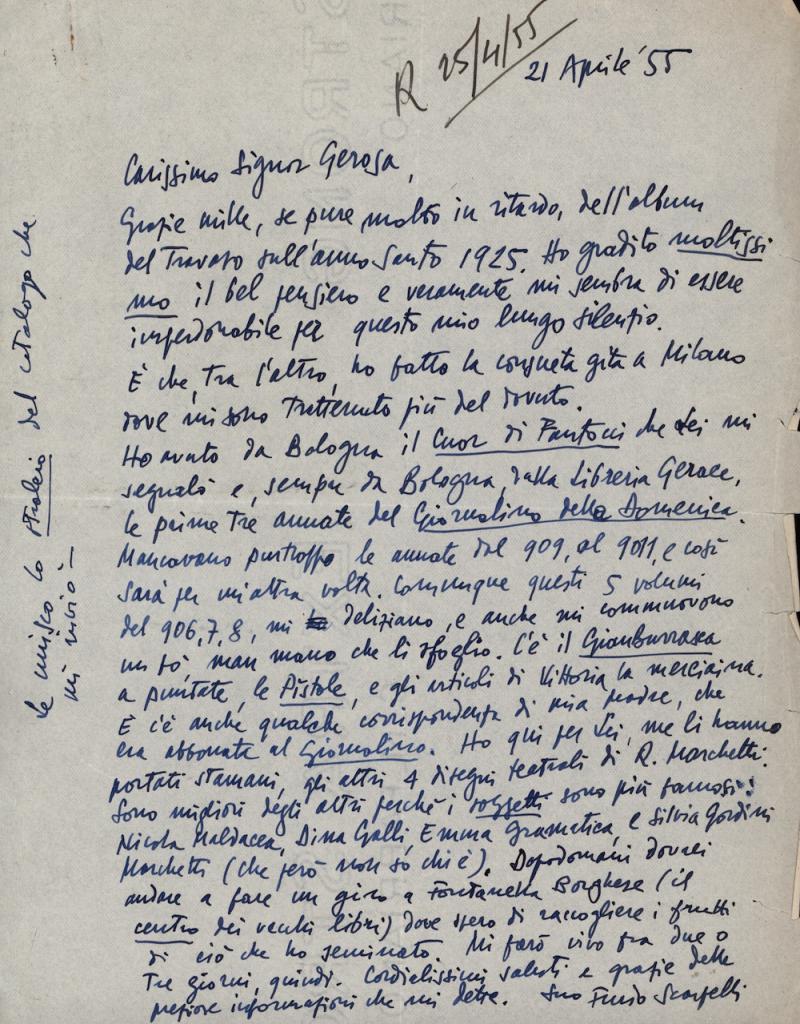 R 25/4/55
21 Aprile '55
Carissimo Signor Gerosa,
Grazie mille, se pure molto in ritardo, dell'album
del Travaso sull'anno Santo 1925. Ho gradito moltissi
mo il bel pensiero e veramente mi sembra di essere
imperdonabile per questo mio lungo silenzio.
È che, tra l'altro, ho fatto la consueta gita a Milano
dove mi sono trattenuto più del dovuto.
Ho avuto da Bologna il Cuor di Fantocci che Lei mi
segnalò e, sempre da Bologna, dalla Libreria Gerace,
le prime tre annate del Giornalino della Domenica.
Mancavano purtroppo le annate dal 909, al 9011, e così
sarà per un'altra volta. Comunque questi 5 volumi
del 906, 7, 8, mi deliziano, e anche mi commuovono
un pò, man mano che li sfoglio. C'è il Gianburrasca
a puntate, le Pistole, e gli articoli di Vittoria la merciaina.
E c'è anche qualche corrispondenza di mia madre, che
era abbonata al Giornalino. Ho qui per Lei, me li hanno
portati stamani, gli altri 4 disegni teatrali di R. Marchetti.
Sono migliori degli altri perché i soggetti sono più famosi:
Nicola Maldacea, Dina Galli, Emma Gramatica, e Silvia Gordini
Marchetti (che però non sò chi è). Dopodomani dovrei
andare a fare un giro a Fontanella Borghese (il
centro dei vecchi libri) dove spero di raccogliere i frutti
di ciò che ho seminato. Mi farò vivo fra due o
tre giorni, quindi. Cordialissimi saluti e grazie delle
preziose informazioni che mi dette. Suo Furio Scarpelli
Le unisco lo stralcio del catalogo che
mi inviò –